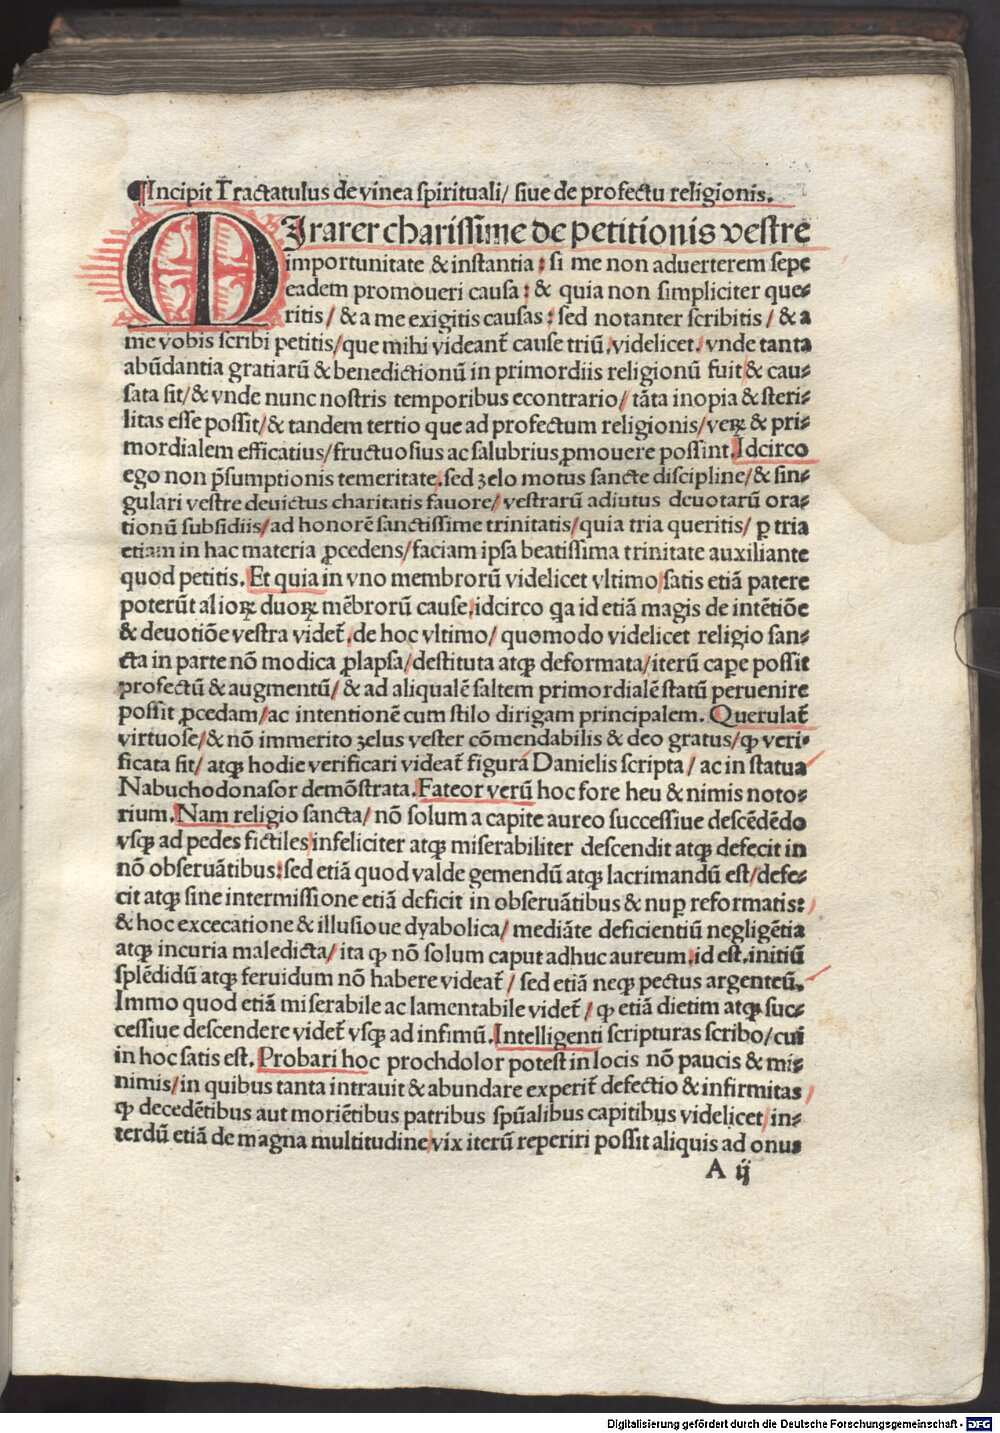 ¶Incipit Tractatulus de vinea spirituali/ siue de profectu religionis.
MIrarer charissime de petitionis vestre
importunitate & instantia: si me non aduerterem sepe
eadem promoueri causa: & quia non simpliciter que⸗
ritis/ & a me exigitis causas: sed notanter scribitis/ & a
me vobis scribi petitis/ que mihi videant̃ cause triū. videlicet. vnde tanta
abūdantia gratiarū & benedictionū in primordiis religionū fuit/ & cau⸗
sata sit/ & vnde nunc nostris temporibus econtrario/ tāta inopia & steri⸗
litas esse possit/ & tandem tertio que ad profectum religionis/ veꝝ & pri⸗
mordialem efficatius/ fructuosius ac salubrius ꝓmouere possint. Idcirco
ego non p̄sumptionis temeritate. sed zelo motus sancte discipline/ & sin⸗
gulari vestre deuictus charitatis fauore/ vestrarū adiutus deuotarū ora⸗
tionū subsidiis/ ad honorē sanctissime trinitatis/ quia tria queritis/ ꝑ tria
etiam in hac materia ꝓcedens/ faciam ipsa beatissima trinitate auxiliante
quod petitis. Et quia in vno membrorū videlicet vltimo/ satis etiā patere
poterūt alioꝝ duoꝝ mēbrorū cause. idcirco q̄a id etiā magis de intētiōe
& deuotiōe vestra videt̃. de hoc vltimo/ quomodo videlicet religio san⸗
cta in parte nō modica ꝓlapsa/ destituta atqꝫ deformata/ iterū caꝑe possit
profectū & augmentū/ & ad aliqualē saltem primordialē statū peruenire
possit ꝓcedam/ ac intentionē cum stilo dirigam principalem. Querulat̃
virtuose/ & nō immerito zelus vester cōmendabilis & deo gratus/ ꝙ veri⸗
ficata sit/ atqꝫ hodie verificari videat̃ figura Danielis scripta/ ac in statua
Nabuchodonasor demōstrata. Fateor verū hoc fore heu & nimis noto⸗
rium. Nam religio sancta/ nō solum a capite aureo successiue descēdēdo
vsqꝫ ad pedes fictiles infeliciter atqꝫ miserabiliter descendit atqꝫ defecit in
nō obseruātibus: sed etiā quod valde gemendū atqꝫ lacrimandū est/ defe⸗
cit atqꝫ sine intermissione etiā deficit in obseruātibus & nuꝑ reformatis:
& hoc excecatione & illusioue dyabolica/ mediāte deficientiū negligētia
atqꝫ incuria maledicta/ ita ꝙ nō solum caput adhuc aureum. id est. initiū
splēdidū atqꝫ feruidum nō habere videat̃/ sed etiā neqꝫ pectus argenteū.
Immo quod etiā miserabile ac lamentabile videt̃/ ꝙ etiā dietim atqꝫ suc⸗
cessiue descendere videt̃ vsqꝫ ad infimū. Intelligenti scripturas scribo/ cui
in hoc satis est. Probari hoc prochdolor potest in locis nō paucis & mi⸗
nimis/ in quibus tanta intrauit & abundare experit̃ defectio & infirmitas
ꝙ decedētibus aut moriētibus patribus spūalibus capitibus videlicet/ in⸗
terdū etiā de magna multitudine vix iterū reperiri possit aliquis ad onus
A ij
Digitalisierung gefördert durch die Deutsche Forschungsgemeinschaft - DFG